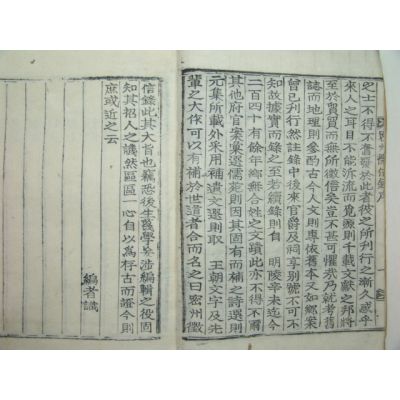 之士不得不奮發於此者彼之所刊行之漸久感乎
來人之耳目不能沛流而覓源則千載文獻之邦將
至於貿貿而無所徵信矣豈不甚可懼哉乃就考舊
誌而地理則參酌古今人文則專依舊本又如鄉案
曾已刊行然註錄中後來官爵及祠享別號不可不
知故據實而錄之至若續錄則自 明陵辛未迄今
二百四十有餘年鄉無合姓之文蹟此亦不得不爾
其他府官案彙選儒苑則因其固有而補之詩選則
元集所載外采用補遺文選則取 王朝文字及先
輩之大作可以有補於世道者合而名之曰密州徵
信錄此其大旨也竊恐後生蔑學妄涉編輯之役固
知其招人之譏然區區一心自以爲存古而證今則
庶或近之云
編者識